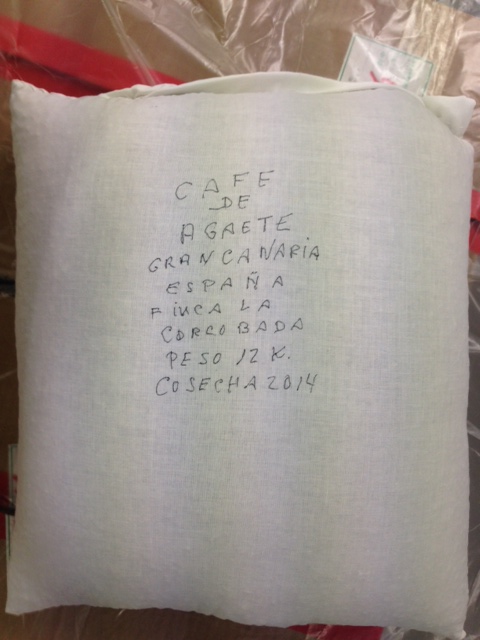 CAFE
DE
AGAETE
GRAN CANARIA
ESPAÑA
FINCA LA
CORCOBADA
PESO 12 K.
COSECHA 2014